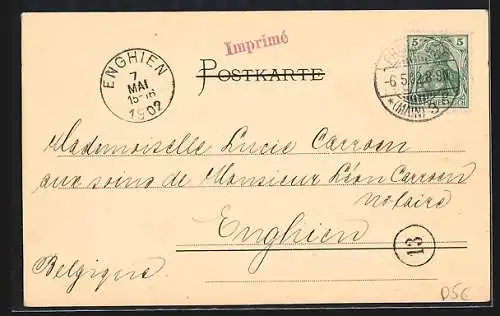 Imprimé
POSTKARTE
ENGHIEN
7
MAI
15-16
1902
5 5
-6.5.02.8-9N.
*(MAIN) 3
Mademoiselle Lucie Carroen
aux soins de Monsieur Léon Carroen
notaire
Enghien
Belgique.
13
DSE